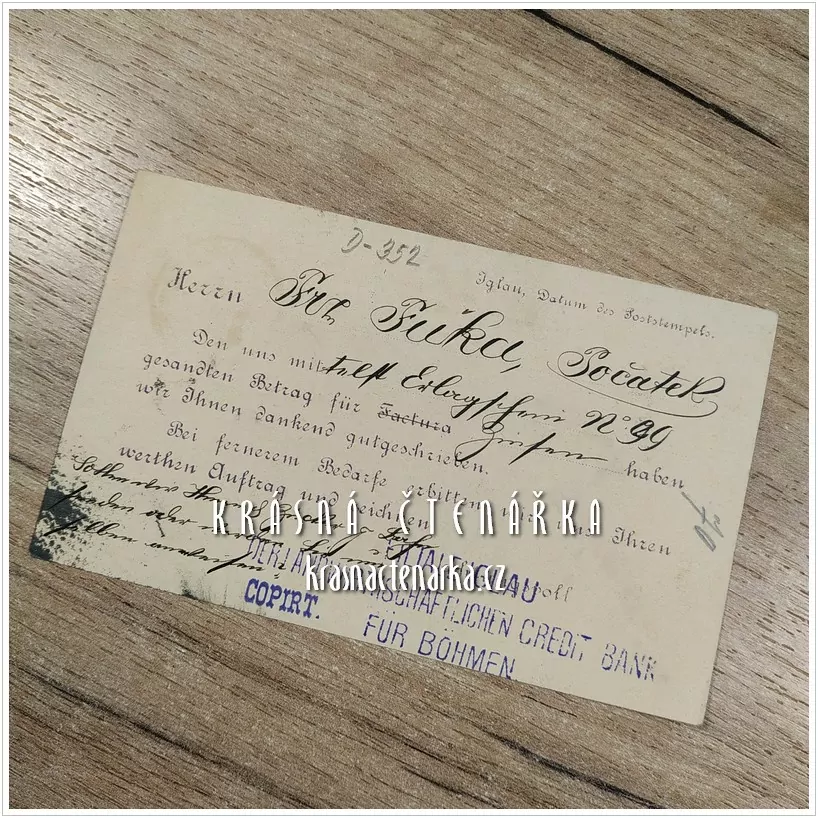 D-352
Iglau, Datum des Poststempels.
Herrn Frz Fuka, Počatek
Den uns mittelst Erlagschein No 99
gesandten Betrag für Factura Zinsen haben
wir Ihnen dankend gutgeschrieben.
Bei fernerem Bedarfe erbitten wir uns Ihren
werthen Auftrag und zeichnen
KRÁSNÁ ČTENÁŘKA
krasnactenarka.cz
FILIALE IGLAU
DER LANDWIRTHSCHAFTLICHEN CREDIT BANK
FÜR BÖHMEN
COPIRT.